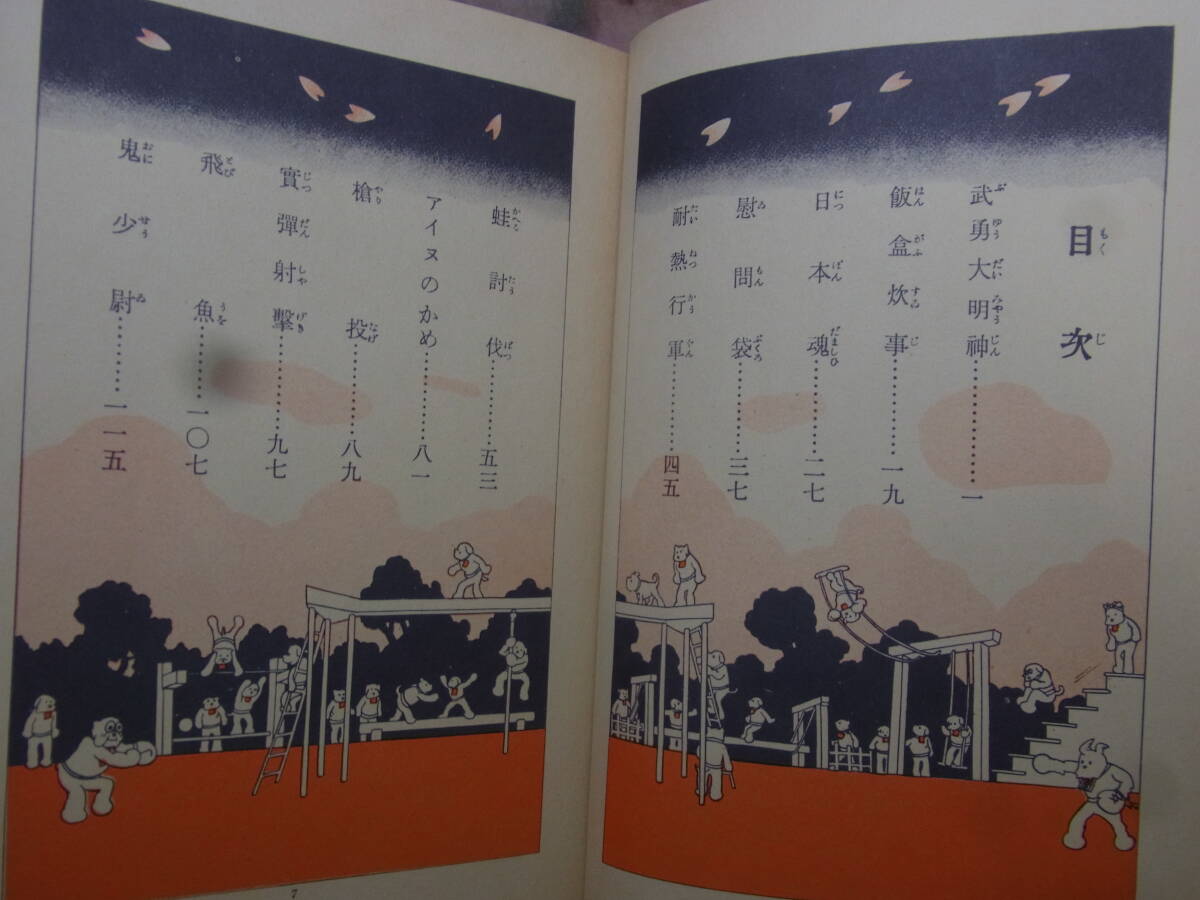 目次
武勇大明神…………一
飯盒炊事…………一九
日本魂…………二七
慰問袋…………三七
耐熱行軍…………四五
蛙討伐…………五三
アイヌのかめ…………八一
槍投…………八九
實彈射擊…………九七
飛魚…………一〇七
鬼少尉…………一一五
7